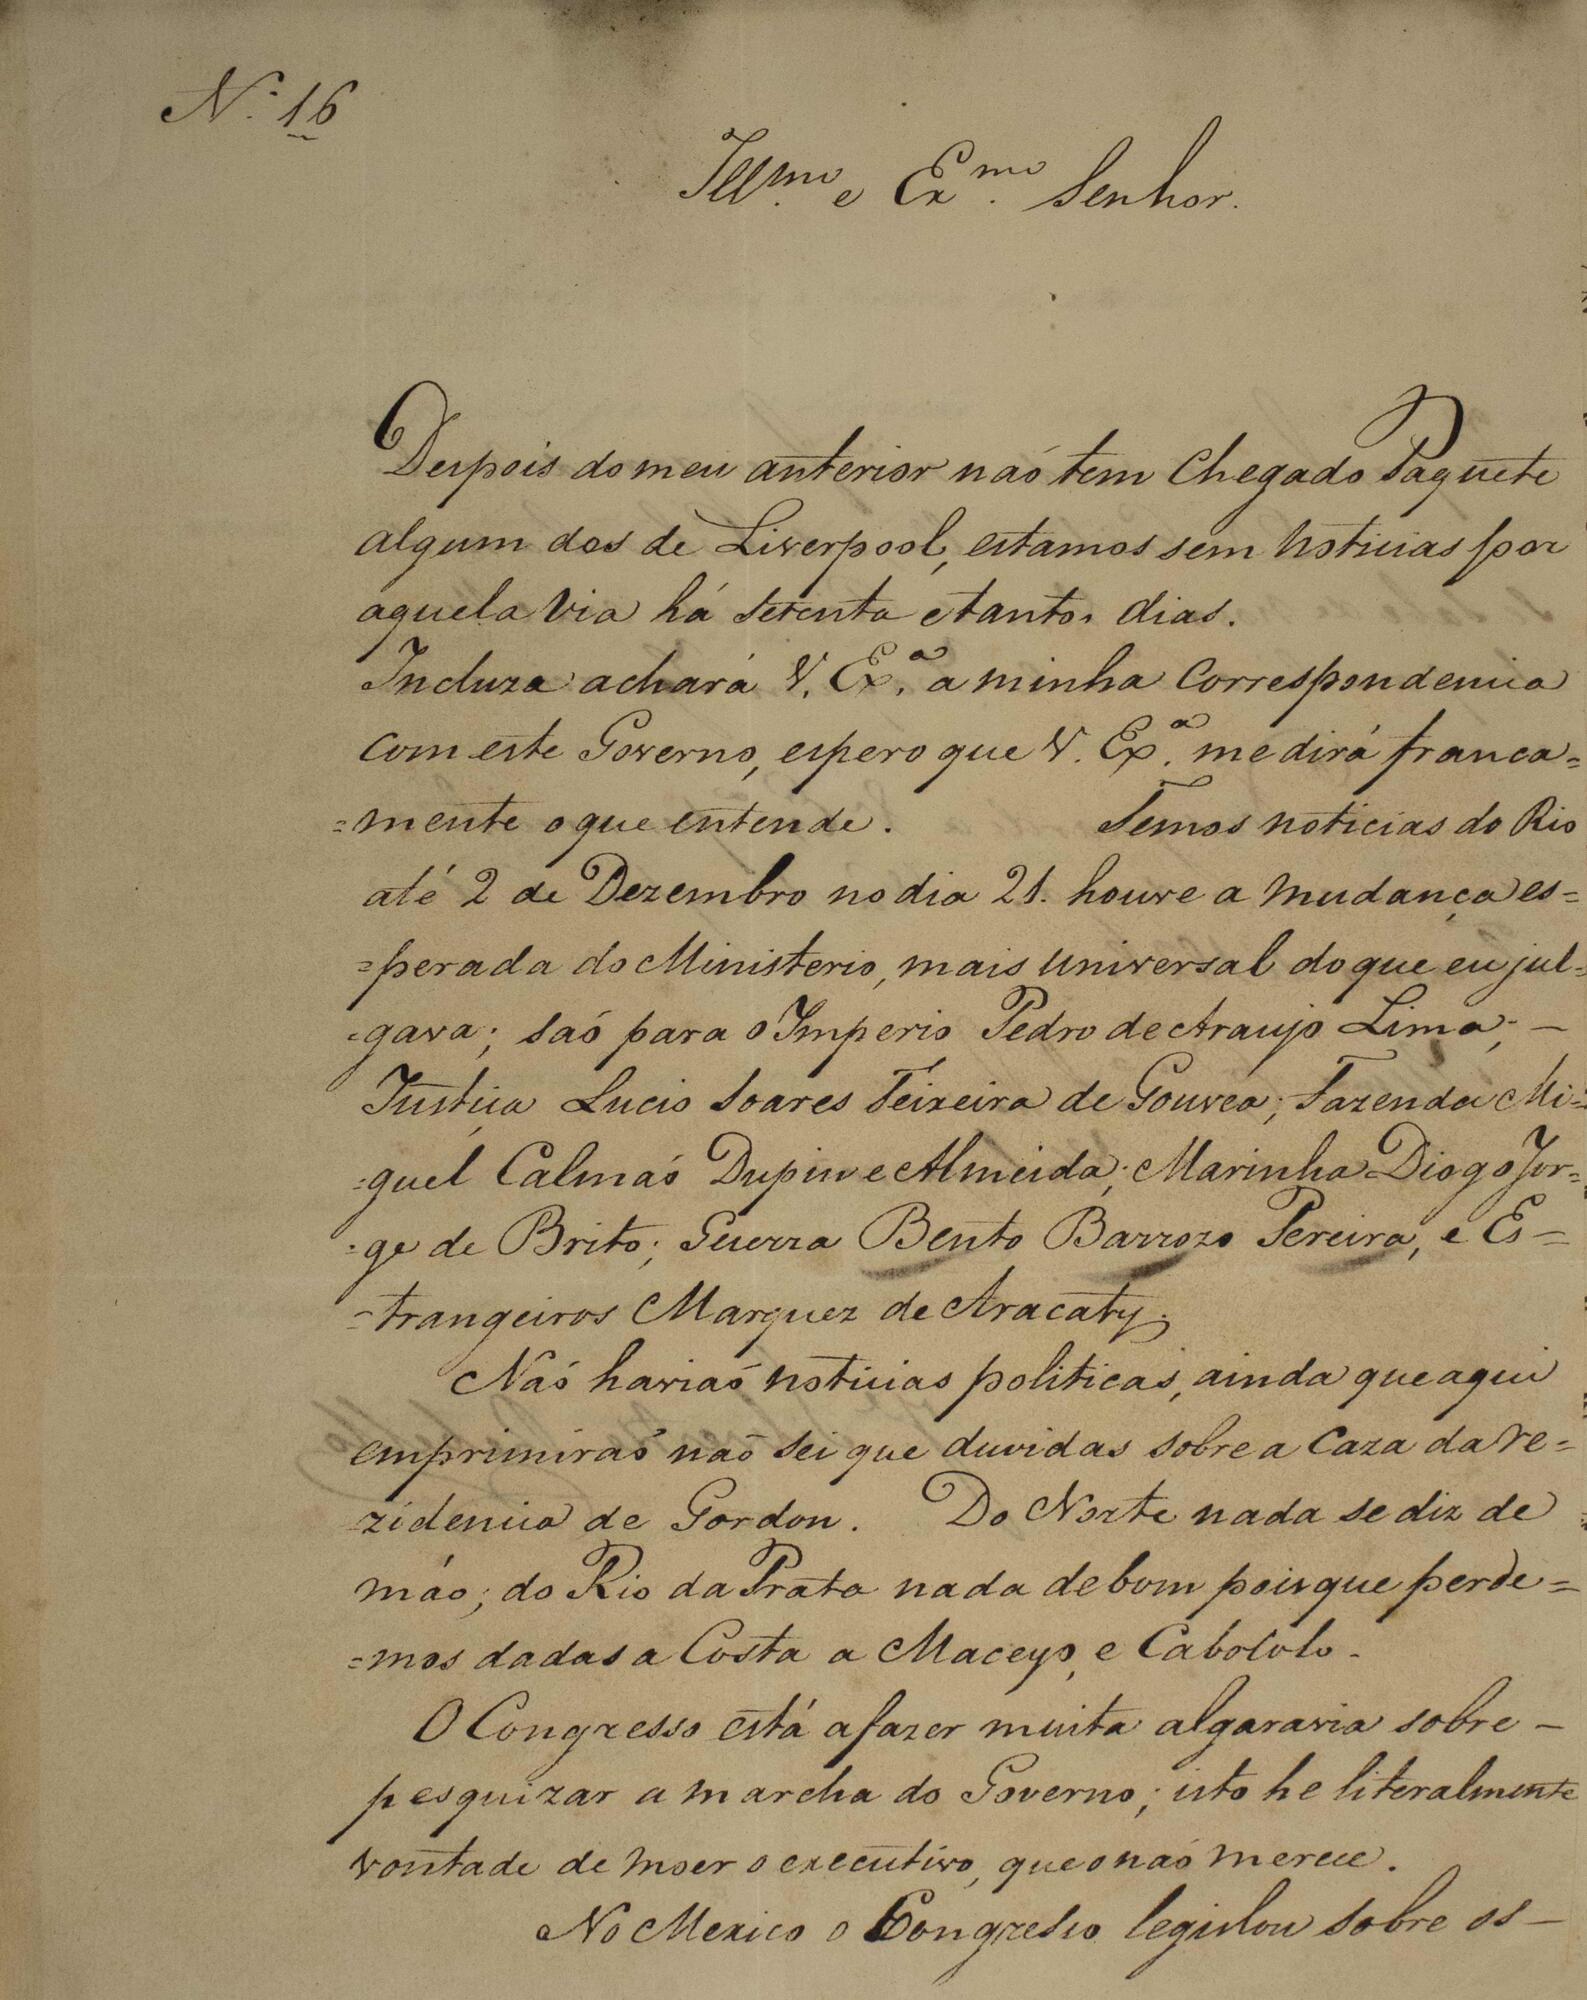 N.º 16
Ill.mo e Ex.mo Senhor.
Depois do meu anterior naõ tem chegado Paquete
algum dos de Liverpool, estamos sem noticias por
aquela via há setenta e tantos dias.
Incluza achará V. Ex.ª a minha correspondencia
com este Governo, espero que V. Ex.ª me dirá franca=
=mente o que entende. Temos noticias do Rio
até 2 de Dezembro no dia 21. houve a mudança es=
=perada do Ministerio, mais universal do que eu jul=
=gava; saõ para o Imperio Pedro de Araujo Lima; —
Justiça Lucio Soares Teixeira de Gouvea; Fazenda Mi=
=guel Calmaõ Dupin e Almeida; Marinha=Diogo Jor=
=ge de Brito; Guerra Bento Barrozo Pereira, e Es=
=trangeiros Marquez de Aracaty.
Naõ haviaõ noticias politicas, ainda que aqui
emprimiraõ naõ sei que duvidas sobre a caza da re=
zidencia de Gordon. Do Norte nada se diz de
máo; do Rio da Prata nada de bom pois que perde=
=mos dadas a Costa a Maceyo, e Cabocolo.
O Congresso está a fazer muita algaravia sobre —
pesquizar a marcha do Governo; isto he literalmente
vontade de moer o executivo, que o naõ merece.
No Mexico o Congresso legislou sobre os —